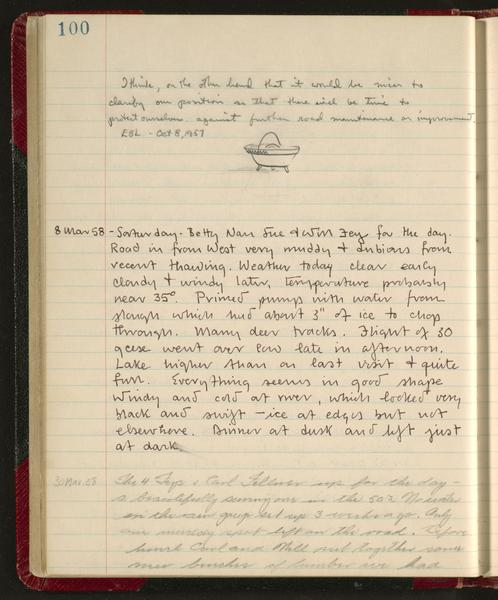 100
I think, on the other hand that it would be nicer to
clarify our position so that there will be time to
protect ourselves against further road maintenance or improvement.
EBL - Oct 8, 1957
8 Mar 58 - Saturday. Betty Nan Sue & Wm Fey for the day.
Road in from West very muddy & dubious from
recent thawing. Weather today clear early
cloudy & windy later, temperature probably
near 35°. Primed pumps with water from
slough which had about 3" of ice to chop
through. Many deer tracks. Flight of 30
geese went over low late in afternoon.
Lake higher than on last visit & quite
full. Everything seems in good shape
Windy and cold at river, which looked very
black and swift - ice at edges but not
elsewhere. Dinner at dusk and left just
at dark.
30 Mar. 58 The 4 Feys & Carl up for the day -
a beautifully sunny one in the 50s. No water
in the rain gauge set up 3 weeks ago. Only
one muddy spot left on the road. Before
lunch Carl and Will put together some
new bunches of lumber we had